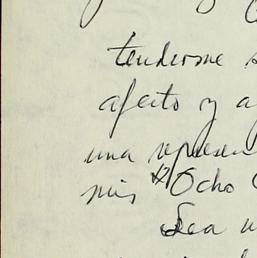 tenderme
afecto y a
una represen
mis "Ocho
Sea